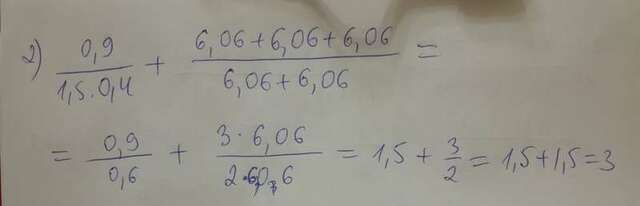 2) 0,9/(1,5·0,4) + (6,06+6,06+6,06)/(6,06+6,06) =
= 0,9/0,6 + (3·6,06)/(2·6,06) = 1,5 + 3/2 = 1,5+1,5=3